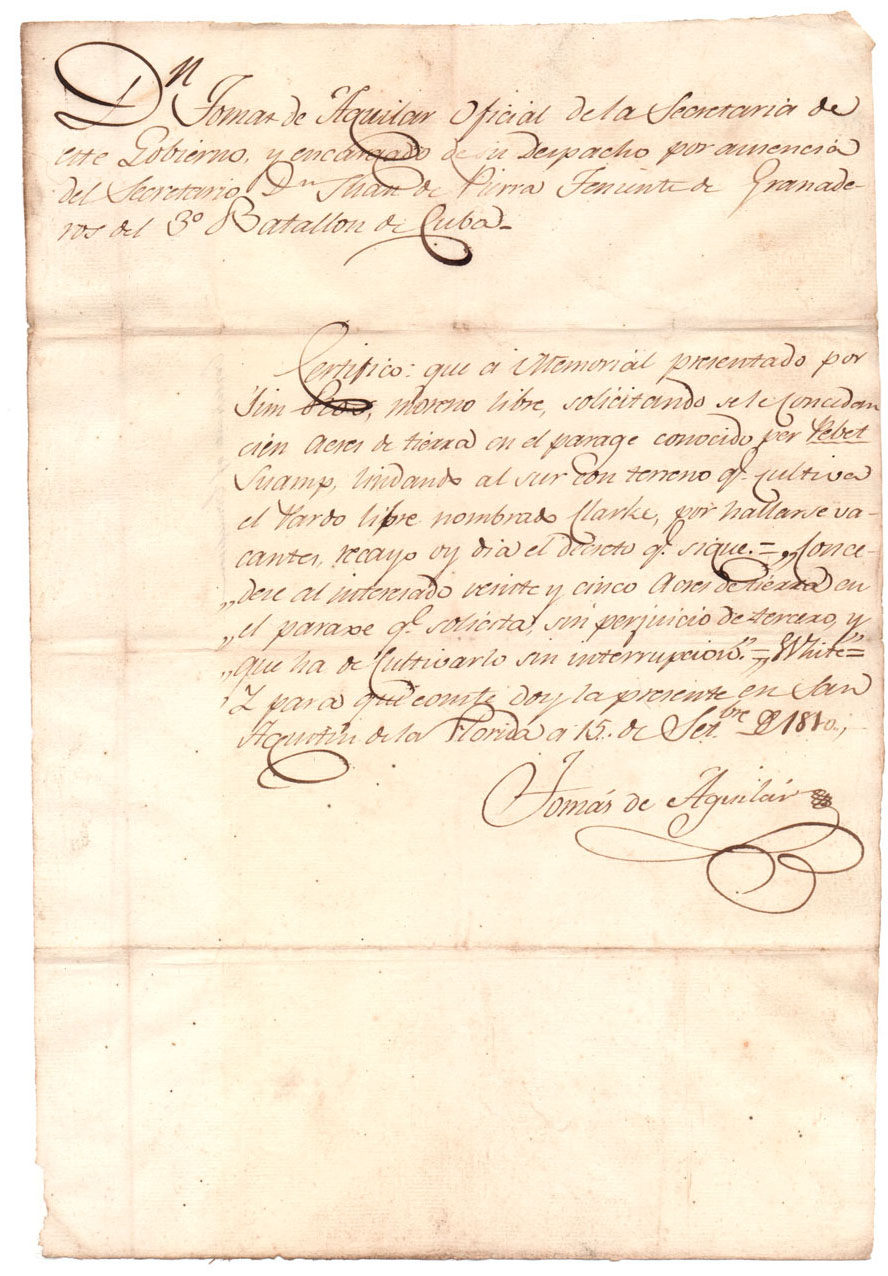 Dn Tomas de Aguilar Oficial de la Secretaria de
este Gobierno, y encargado de su Despacho por ausencia
del Secretario Dn Juan de Pierra Teniente de Granade-
ros del 3º Batallon de Cuba.
Certifico: que a Memorial presentado por
moreno libre, solicitando se le concedan
cien Acres de tierra en el parage conocido por Pebet
Suamp, lindando al sur con terreno qe. cultiva
el Pardo libre nombrado Clarke, por hallarse va-
cantes, recayo oy dia el decreto qe. sigue.= „Conce-
„dese al interesado veinte y cinco Acres de tierra en
„el paraxe qe. solicita, sin perjuicio de tercero, y
„que ha de cultivarlo sin interrupcion.”=„White”=
Y para que conste doy la presente en San
Agustin de la Florida a 15. de Setbre. D 1810.,
Tomás de Aguilar